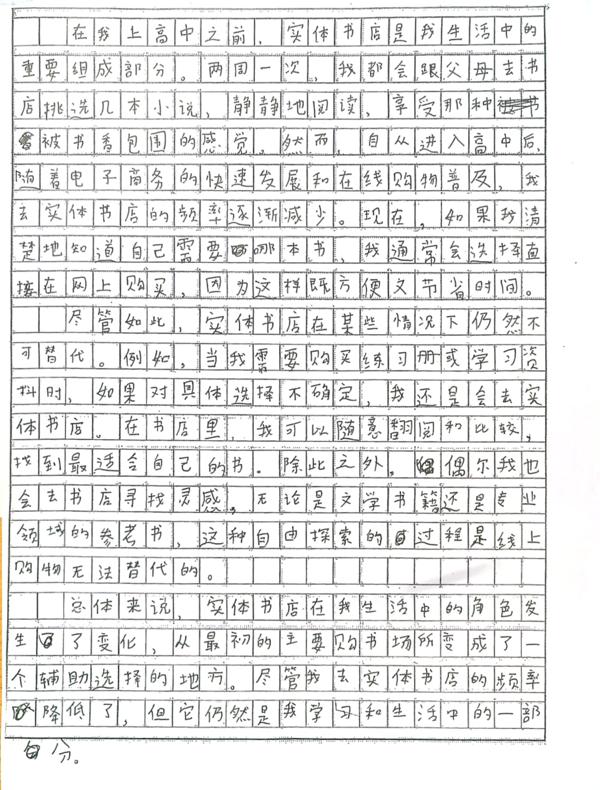 在我上高中之前，实体书店是我生活中的
重要组成部分。两周一次，我都会跟父母去书
店挑选几本小说，静静地阅读，享受那种
被书香包围的感觉。然而，自从进入高中后，
随着电子商务的快速发展和在线购物普及，我
去实体书店的频率逐渐减少。现在，如果我清
楚地知道自己需要哪本书，我通常会选择直
接在网上购买，因为这样既方便又节省时间。
尽管如此，实体书店在某些情况下仍然不
可替代。例如，当我需要购买练习册或学习资
料时，如果对具体选择不确定，我还是会去实
体书店。在书店里，我可以随意翻阅和比较，
找到最适合自己的书。除此之外，偶尔我也
会去书店寻找灵感，无论是文学书籍还是专业
领域的参考书，这种自由探索的过程是线上
购物无法替代的。
总体来说，实体书店在我生活中的角色发
生了变化，从最初的主要购书场所变成了一
个辅助选择的地方。尽管我去实体书店的频率
降低了，但它仍然是我学习和生活中的一部
分。